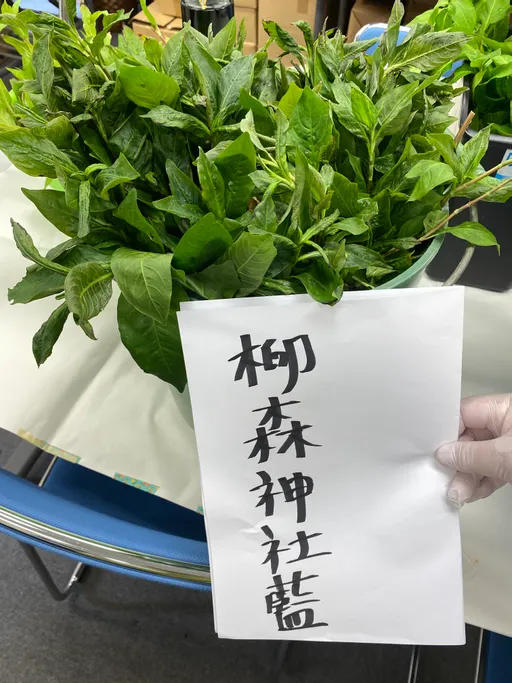 柳森神社藍